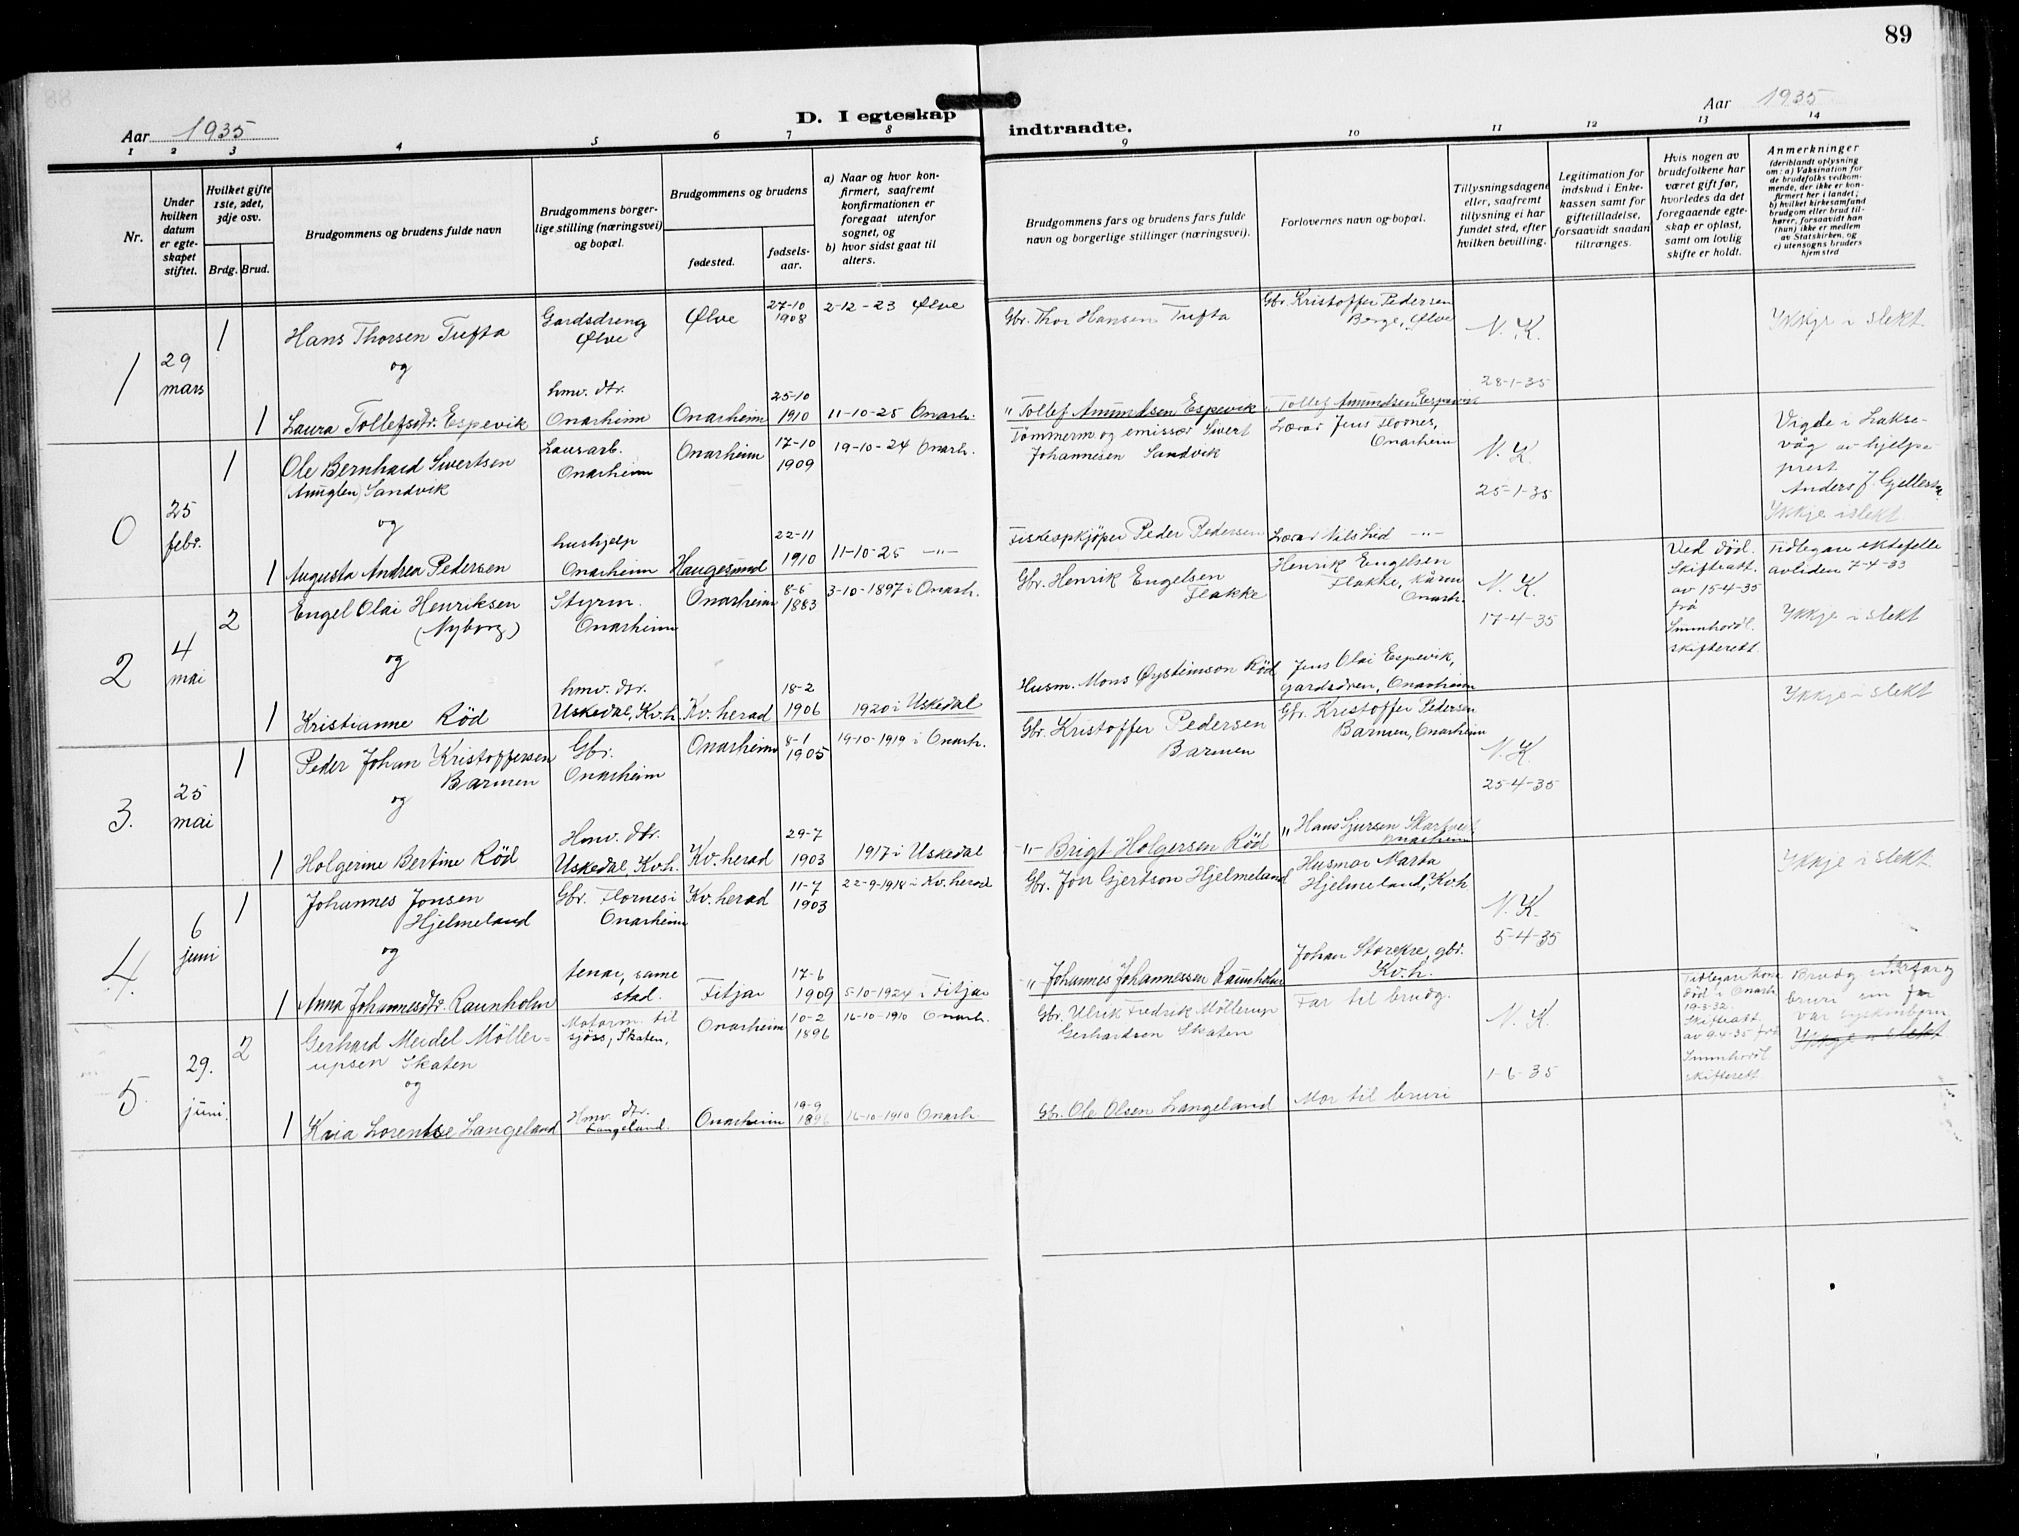 89
Aar 1935
D. I egteskap
indtraadte.
Aar 1935
1 2 3 4 5 6 7 8 9 10 11 12 13 14
Nr.
Under hvilken datum er egteskapet stiftet.
Hvilket gifte 1ste, 2det, 3dje osv.
Brdg. Brud.
Brudgommens og brudens fulde navn
Brudgommens borgerlige stilling (næringsvei) og bopæl.
Brudgommens og brudens
fødested.
fødselsaar.
a) Naar og hvor konfirmert, saafremt konfirmationen er foregaat utenfor sognet, og
b) hvor sidst gaat til alters.
Brudgommens fars og brudens fars fulde navn og borgerlige stillinger (næringsvei).
Forlovernes navn og bopæl.
Tillysningsdagene eller, saafremt tillysning ei har fundet sted, efter hvilken bevilling.
Legitimation for indskud i Enkekassen samt for giftetilladelse, forsaavidt saadan tiltrænges.
Hvis nogen av brudefolkene har været gift før, hvorledes da det foregaaende egteskap er opløst, samt om lovlig skifte er holdt.
Anmerkninger
(deriblandt oplysning om: a) Vaksination for de brudefolks vedkommende, der ikke er konfirmert her i landet; b) hvilket kirkesamfund brudgom eller brud tilhører, forsaavidt han (hun) ikke er medlem av Statskirken, og c) utensogns bruders hjemsted
1
29 mars
1
Hans Thorsen Tufta
og
Gardsdreng Ølve
Ølve
27-10 1908
2-12-23 Ølve
Gbr. Thor Hansen Tufta
Gbr. Kristoffer Pedersen Berge, Ølve
N. K.
28-1-35
Ikkje i slekt
1
Laura Tollefsdtr. Espevik
hmv. dtr. Onarheim
Onarheim
25-10 1910
11-10-25 Onarh.
" Tollef Amundsen Espevik
" Tollef Amundsen Espevik
0
25 febr.
1
Ole Bernhard Sivertsen
(Amuglen) Sandvik
og
Lausarb. Onarheim
Onarheim
17-10 1909
19-10-24 Onarh.
Tømmerm og emissær Sivert Johannesen Sandvik
Lærar Jens Flornes, Onarheim
N. K.
25-1-35
Vigde i Laksevåg av hjelpeprest
Anders J. Gjellesvik
Ikkje i slekt
1
Augusta Andrea Pedersen
hushjelp Onarheim
Haugesund
22-11 1910
11-10-25 —"—
Fiskeopkjøper Peder Pedersen
Lærar Nils Lid —"—
2
4 mai
2
Engel Olai Henriksen
(Nyborg)
og
Styrm. Onarheim
Onarheim
8-6 1883
3-10-1897 i Onarh.
Gbr. Henrik Engelsen Flakke
Henrik Engelsen Flakke, kåren Onarh.
N. K.
17-4-35
Ved död. Skifteatt. av 15-4-35 frå Sunnhordl. skifterett
Tidlegare ektefelle avliden 7-4-33
Ikkje i slekt
1
Kristianne Röd
hmv. dtr. Uskedal, Kv.h.
Kv. herad
18-2 1906
1920 i Uskedal
Husm. Mons Øysteinson Röd
Jens Olai Espevik, gardsdren, Onarheim
3.
25 mai
1
Peder Johan Kristoffersen Barmen
og
Gbr. Onarheim
Onarheim
8-1 1905
19-10-1919 i Onarh.
Gbr. Kristoffer Pedersen Barmen
Gbr. Kristoffer Pedersen Barmen, Onarheim
N. K.
25-4-35
Ikkje i slekt
1
Holgerine Bertine Röd
Hmv. dtr. Uskedal, Kv.h.
Kv. herad
29-7 1903
1917 i Uskedal
-"- Brigt Holgersen Röd
" Hans Gjersen Skartveit Onarheim
4.
6 juni
1
Johannes Jonsen Hjelmeland
og
Gbr. Flornes i Onarheim
Kv. herad
11-7 1903
22-9-1918 i Kv. herad
Gbr. Jon Gjertson Hjelmeland
Husmor Marta Hjelmeland, Kv.h
N. K.
5-4-35
Ikkje i slekt
1
Anna Johannesdtr. Raunholm
tenar, same stad.
Fitjar
17-6 1909
5-10-1924 i Fitjar
" Johannes Johannessen Raunholm
Johan Storekre, gbr. Kv.h.
5
29. juni.
2
Gerhard Meidel Möllerupsen Skaten
og
Motorm. til sjöss, Skaten,
Onarheim
10-2 1896
16-10-1910 Onarh.
Gbr. Ulrik Fredrik Möllerup Gerhardson Skaten
Far til brudg.
N. K.
1-6-35
Tidlegare kona död i Onarh. 19-3-32. Skifteatt. av 9-4-35 frå Sunnhordl skifterett
Brudg sin farfar og bruri sin far var syskinbarn
Ikkje i slekt
1
Kaia Lorentse Langeland
Hmv. dtr. Langeland.
Onarheim
19-9 1896
16-10-1910 Onarh.
Gbr. Ole Olsen Langeland
Mor til bruri